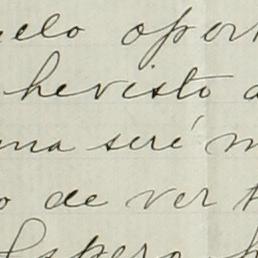 uelo oport
hevisto a
na seré m
o de ver t
Espero h